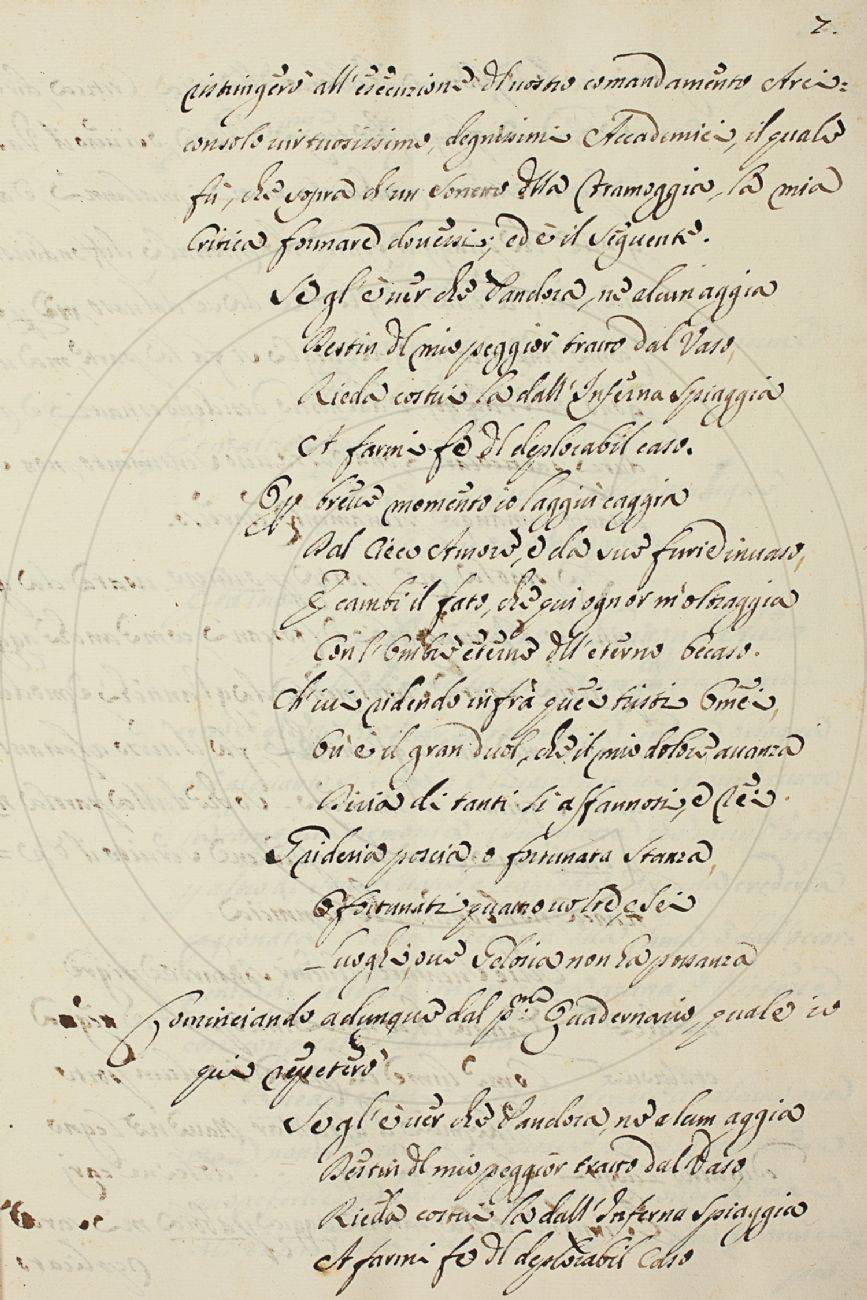 2.
ristringerò all'esecuzione del vostro comandamento Arci=
consolo virtuosissimo, degnissimi Accademici, il quale
fù, che sopra d'un Sonetto della Tramoggia, la mia
Critica formare dovessi; ed è il seguente.
Se gl'è ver che Pandora, ne alcun aggia
Destin del mio peggior tratto dal Vaso,
Rieda costui là dall'Inferna spiaggia
A farmi fè del deplorabil caso.
Per breve momento io laggiù caggia
Dal Cieco Amore, e da sue furie invaso,
E cambi il fato, che qui ognor m'oltraggia
Con l'Ombre eterne dell'eterno Occaso.
Ch'ivi ridendo infrà quei tristi Omei,
Ov'è il gran duol, che il mio dolore avanza
Diria di tanti sì affannosi, e rei
Grideria poscia, o fortunata Stanza,
O fortunati quattro volte, e Sei
Luoghi, ove Gelosia non ha possanza
Cominciando adunque dal pmo. Quadernario, quale io
qui repeterò
Se gl'è ver che Pandora, ne alcun aggia
Destin del mio peggior tratto dal Vaso,
Rieda costui là dall'Inferna Spiaggia
A farmi fè del deplorabil Caso